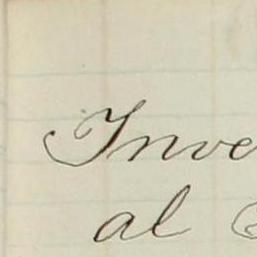 Inve
al